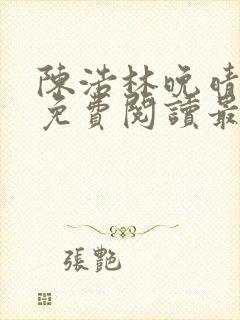 陳浩林晚晴
免費閱讀最
張艷